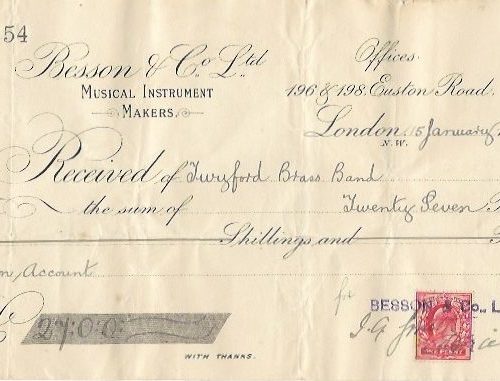 54
Besson & Co. Ltd
Musical Instrument
Makers.
Offices
196 & 198, Euston Road.
London, 15 January
N.W.
Received of Twyford Brass Band
the sum of Twenty Seven P
Shillings and
n Account
for
BESSON & Co., L
£ 27.0.0
ONE PENNY
WITH THANKS.